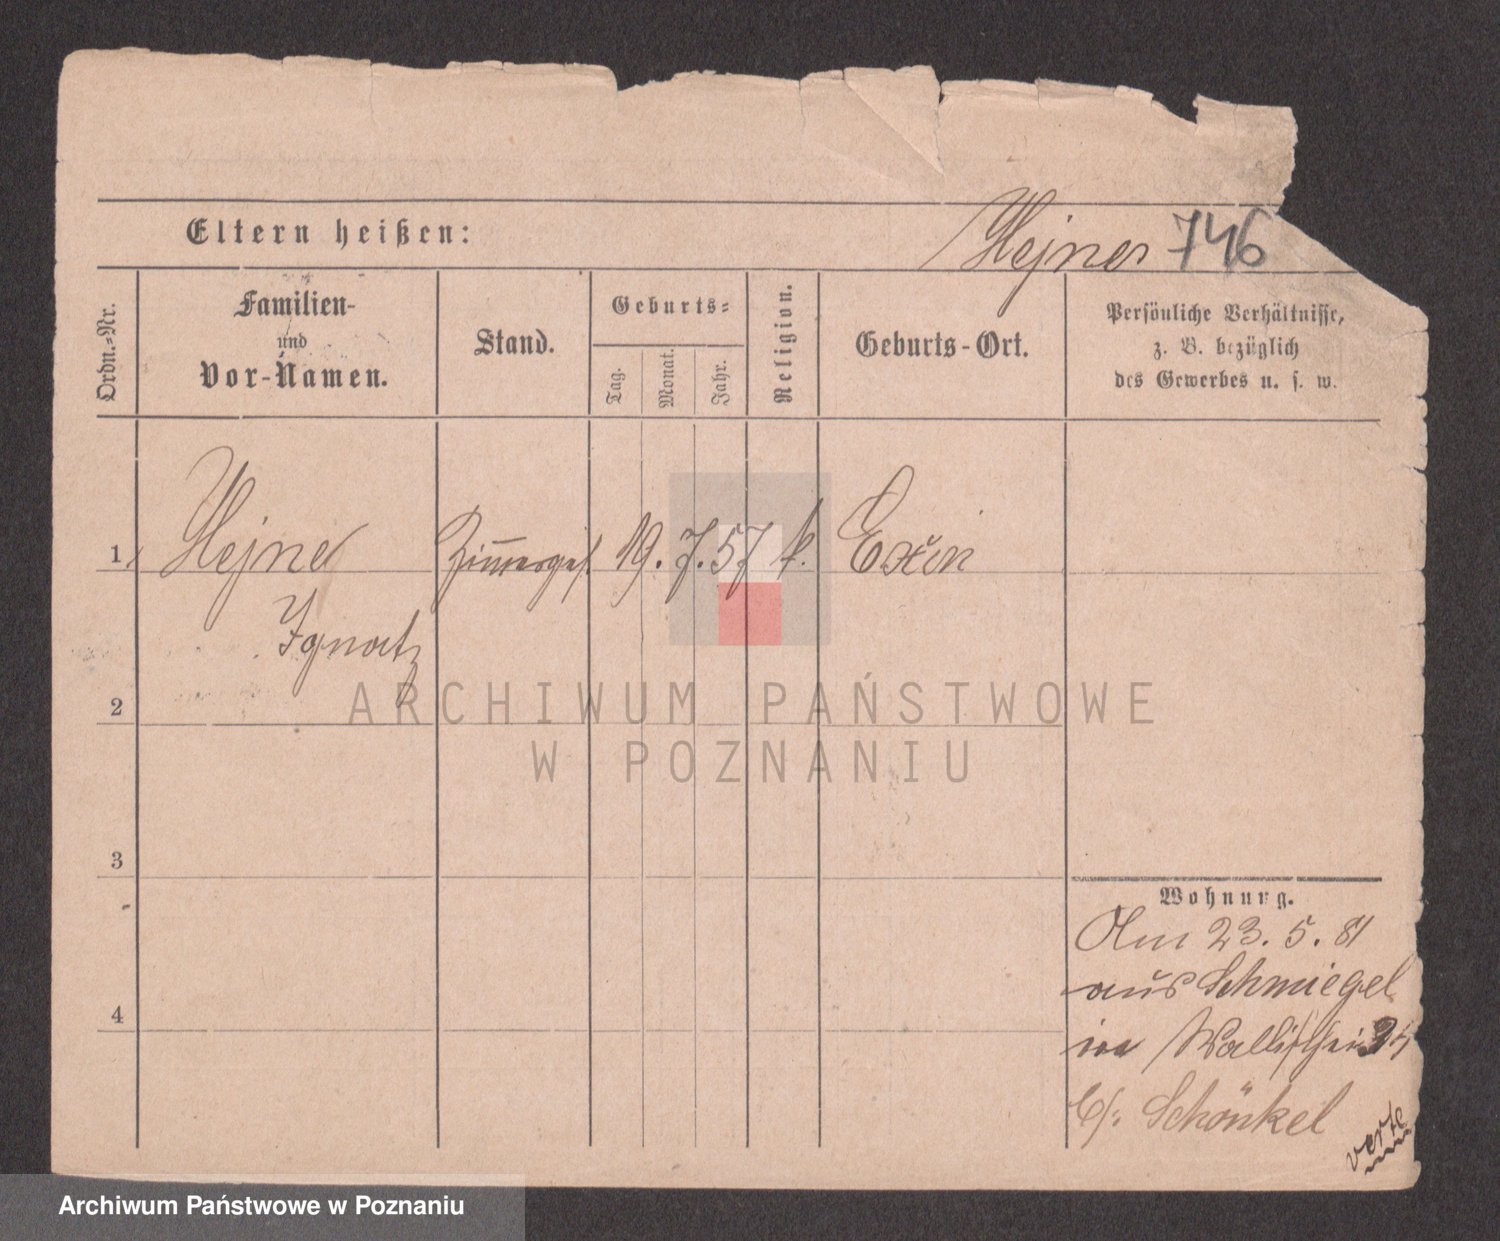 Eltern heißen:
Hejner 746
Ordn.-Nr.
Familien-
und
Vor-Namen.
Stand.
Geburts-
Tag.
Monat.
Jahr.
Religion.
Geburts-Ort.
Persönliche Verhältnisse,
z. B. bezüglich
des Gewerbes u. s. w.
1 Hejne Zimmerges. 19. 7. 57 k. Exin
Ignatz
2
3
4
Wohnung.
Am 23. 5. 81
aus Schmiegel
in Wallischei
b/: Schönkel
verte
ARCHIWUM PAŃSTWOWE
W POZNANIU
Archiwum Państwowe w Poznaniu